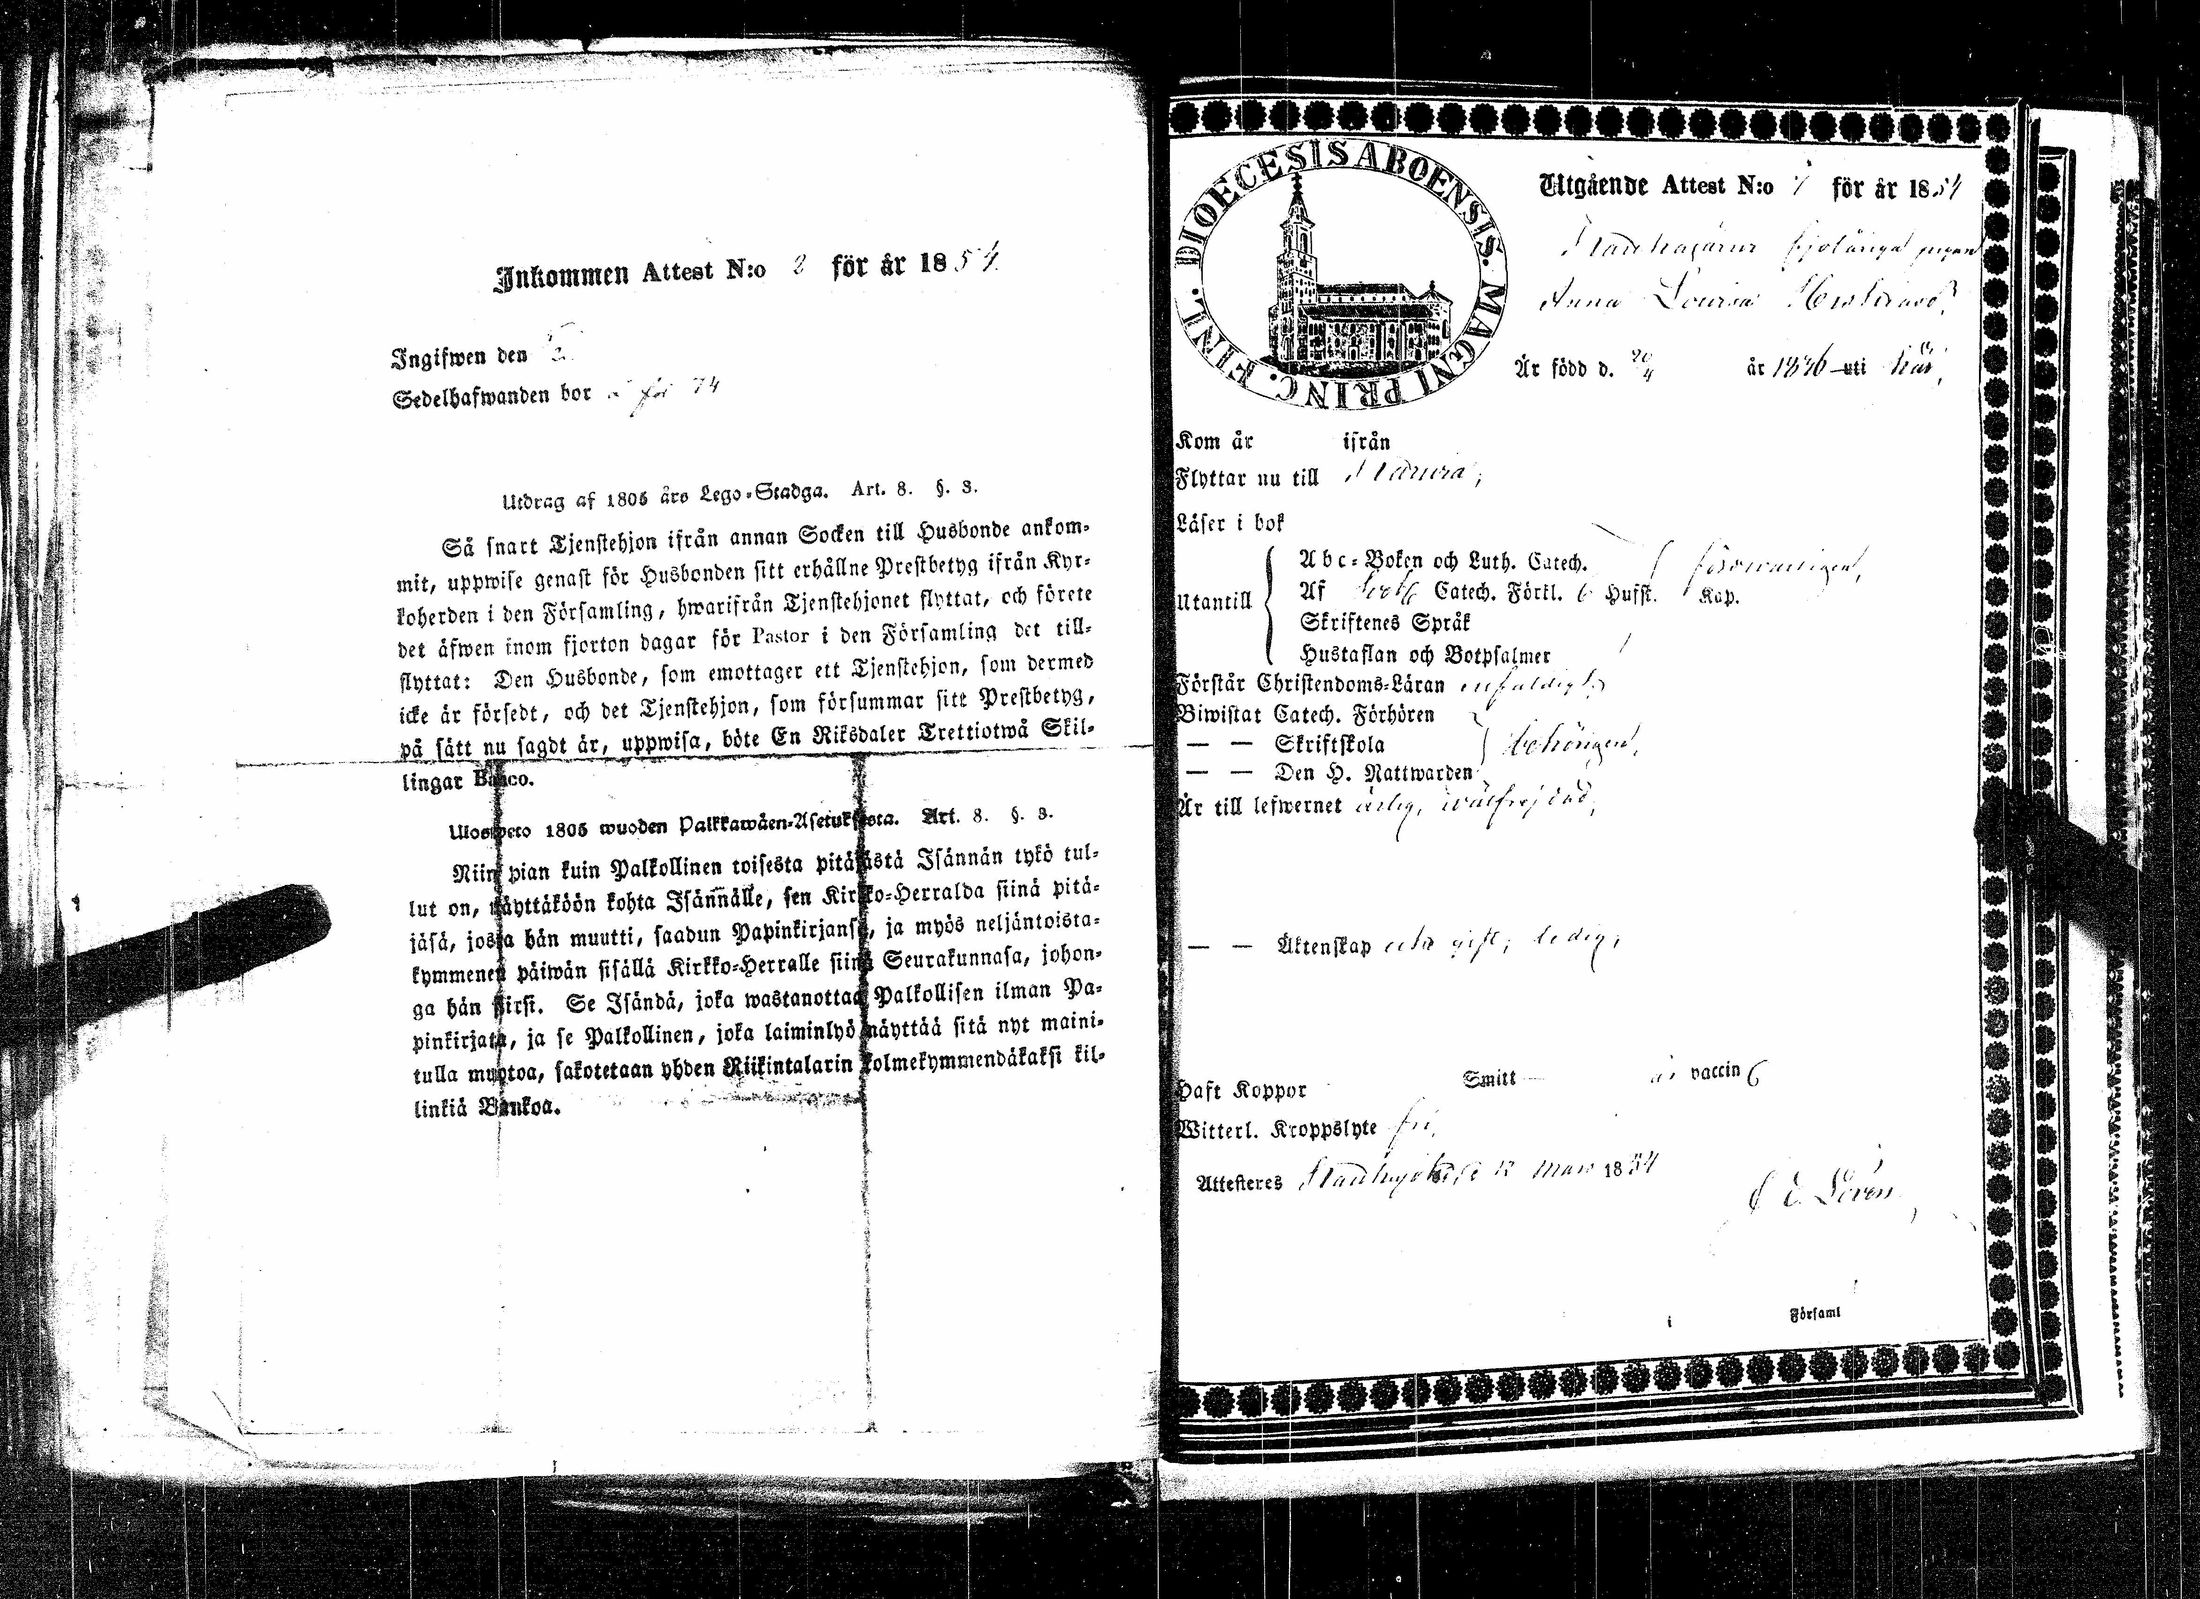 Inkommen Attest N:o 2 för år 1854.
Ingifwen den
Sedelhafwanden bor för 74
Utdrag af 1805 års Lego-Stadga. Art. 8. §. 3.
Så snart Tjenstehjon ifrån annan Socken till Husbonde ankom-
mit, uppwise genast för Husbonden sitt erhållne Prestbetyg ifrån Kyr-
koherden i den Församling, hwarifrån Tjenstehjonet flyttat, och förete
det äfwen inom fjorton dagar för Pastor i den Församling det till-
flyttat: Den Husbonde, som emottager ett Tjenstehjon, som dermed
icke är försedt, och det Tjenstehjon, som försummar sitt Prestbetyg,
på sätt nu sagdt är, uppwisa, böte En Riksdaler Trettiotwå Skil-
lingar Banco.
Ulosweto 1805 wuoden Palkkawäen-Asetuksesta. Art. 8. §. 3.
Niin pian kuin Palkollinen toisesta pitäjästä Isännän tykö tul-
lut on, näyttäköön kohta Isännälle, sen Kirkko-Herralda siinä pitä-
jäsä, josta hän muutti, saadun Papinkirjansa, ja myös neljäntoista-
kymmenen päiwän sisällä Kirkko-Herralle siinä Seurakunnasa, johon-
ga hän siirsi. Se Isändä, joka wastanottaa Palkollisen ilman Pa-
pinkirjata, ja se Palkollinen, joka laiminlyö näyttää sitä nyt maini-
tulla muotoa, sakotetaan yhden Riikintalarin kolmekymmendäkaksi kil-
linkiä Bankoa.
DIOECESIS ABOENSIS. MAGNI PRINC. FINL.
Utgående Attest N:o 7 för år 1854
pigan
Anna Lovisa
Är född d. 20/4 år 1836 uti här,
Kom år ifrån
Flyttar nu till
Läser i bok
Abc-Boken och Luth. Catech. försvarligen,
Utantill Af Catech. Förkl. 6 Hufst. Kap.
Skriftenes Språk
Hustaflan och Botpsalmer
Förstår Christendoms-Läran enfaldigt,
Biwistat Catech. Förhören
— — Skriftskola behörigen,
— — Den H. Nattwarden
Är till lefwernet ärlig, wälfrejdad,
— — Äktenskap icke gift, ledig,
Haft Koppor Smitt är vaccin
Witterl. Kroppslyte fri,
Attesteres 12 Mars 1854
i Församl